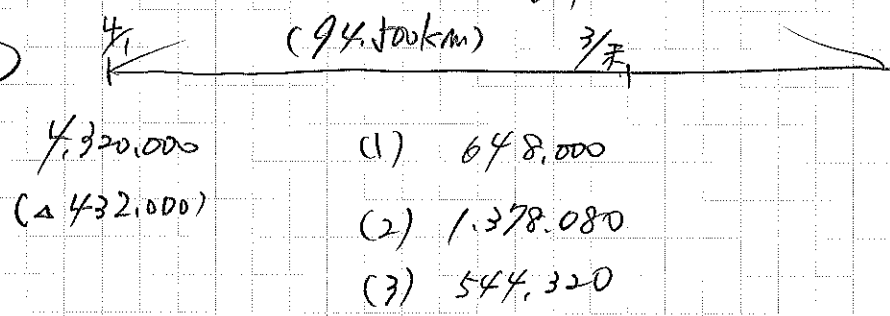 4/1 (94.500km) 3/末
4,320,000 (1) 648,000
(△432,000)
(2) 1.378.080
(3) 544,320